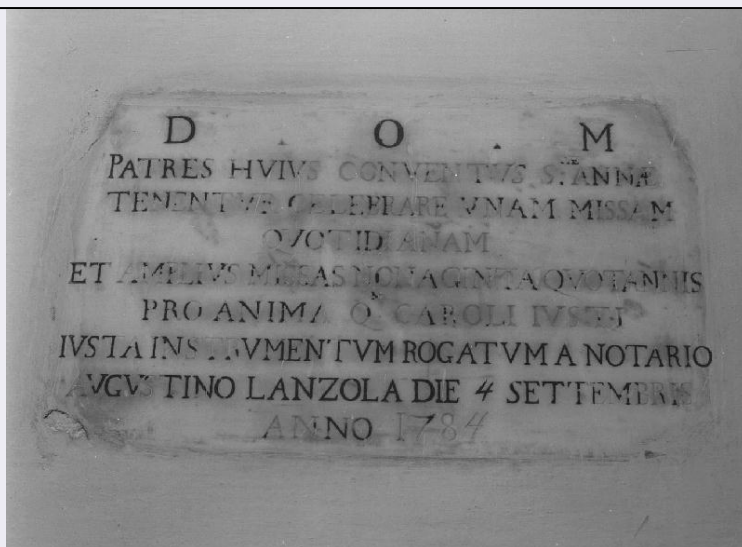 D . O . M
PATRES HVIVS CONVENTVS S.ÆE ANNÆ
TENENTVR CELEBRARE VNAM MISSAM
QVOTIDIANAM
ET AMPLIVS MISSAS NONAGINTA QVOTANNIS
PRO ANIMA CAROLI IVSTI
IVSTA INSTRVMENTVM ROGATVM A NOTARIO
AVGVSTINO LANZOLA DIE 4 SETTEMBRIS
ANNO 1784